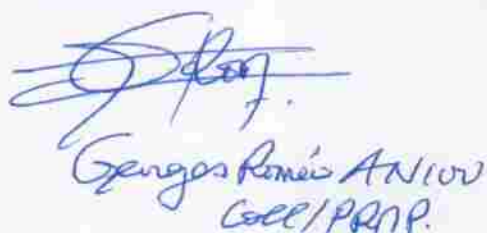 Georges Roméo ANIOU
Coll/PRMP.